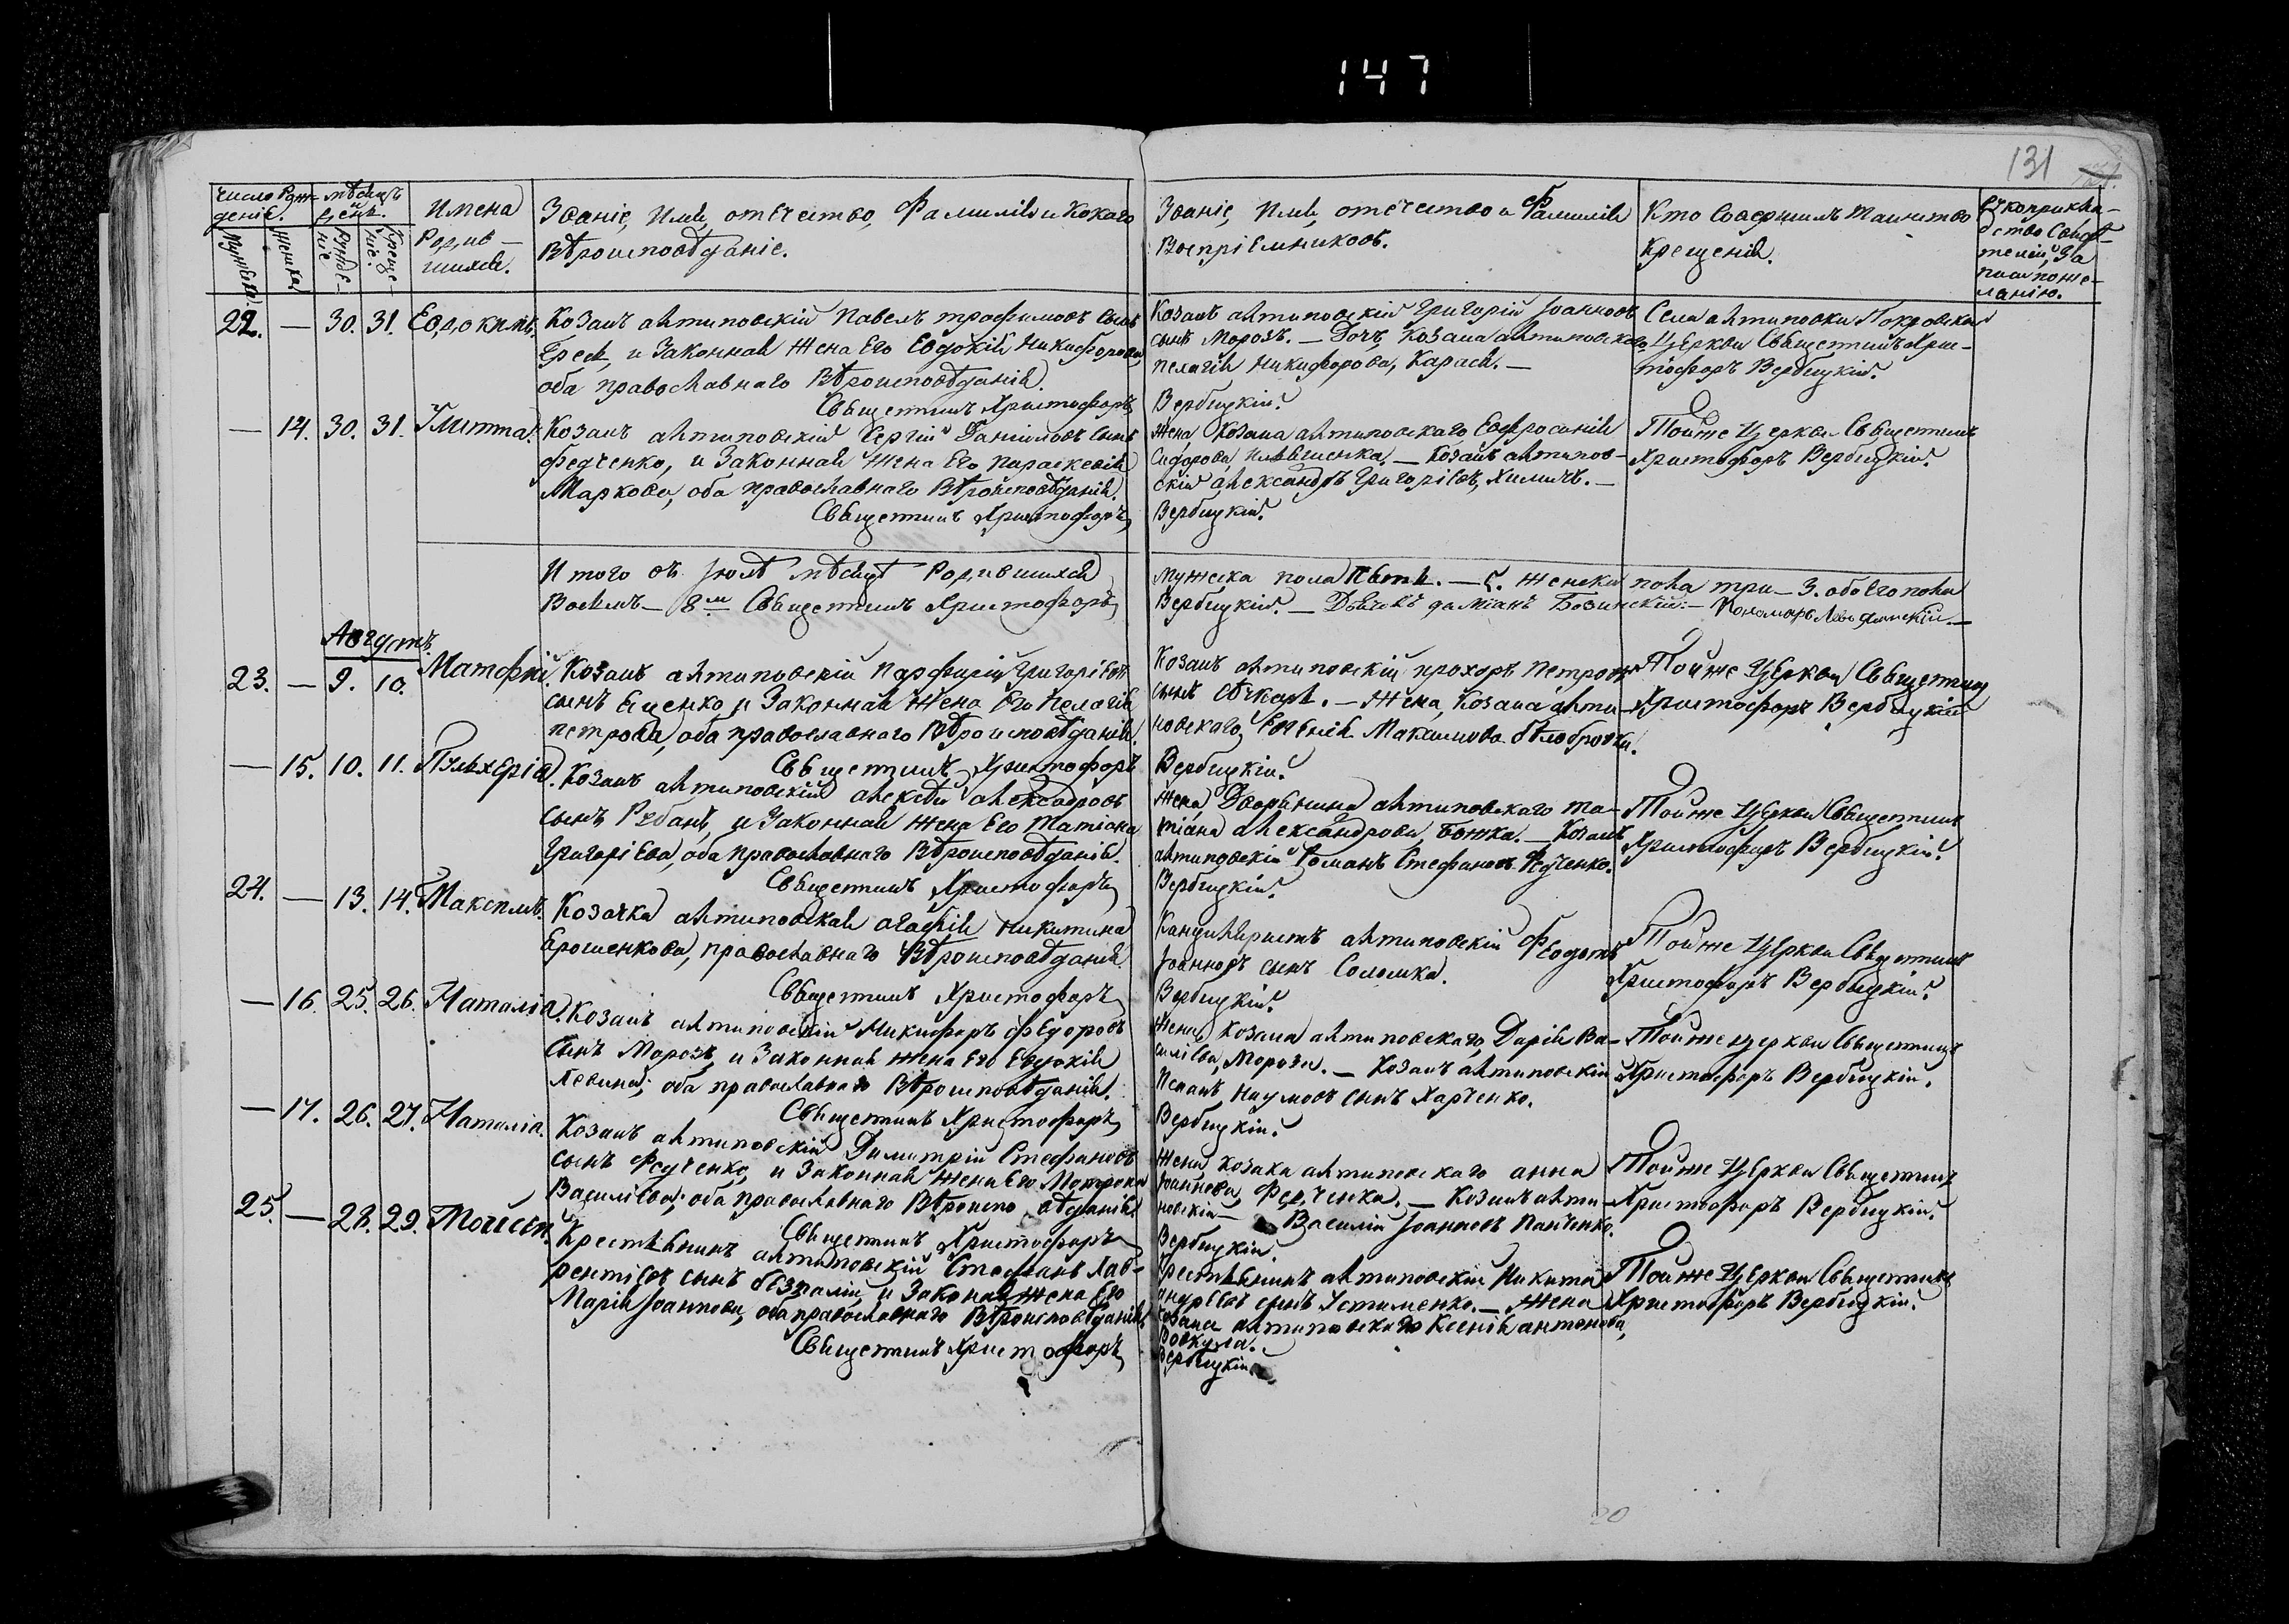 147
131
Число Рож-
деніе.
мѣсяцъ
и день.
Имена
Родив-
шихся.
Званіе, Имя, отечество, Фамилія и Кокаго
Вѣроисповѣданіе.
Званіе, Имя, отечество и Фамилія
Воспріемниковъ.
Кто Совершилъ таинство
Крещенія.
Мужеска.
Женска.
Рожде-
ніе
Креще-
ніе.
22. — 30. 31. Евдокимъ.
Козакъ антиповскій Павелъ трофимовъ Сынъ
и Законная Жена Его Евдокія Никифорова,
оба православнаго Вѣроисповѣданія.
Священникъ Христофоръ
Козакъ антиповскій Григорій Іоанновъ
сынъ Морозъ. — Дочь Козака антиповскаго
пелагія Никифорова, Карася. —
Вербицкій.
Села антиповки Покровской
Церкви Священникъ Хри-
тофоръ Вербицкій.
— 14. 30. 31.
Козакъ антиповскій Сергій Даніиловъ Сынъ
федченко, и Законная Жена Его параскевія
Маркова, оба православнаго Вѣроисповѣданія.
Священникъ Христофоръ
Жена Козака антиповскаго Евфросинія
Сидорова, — Козакъ антипов-
скій александръ Григоріевъ, Химичъ. —
Вербицкій.
Той же Церкви Священникъ
Христофоръ Вербицкій.
Итого въ Іюлѣ мѣсяцѣ Родившихся
мужеска пола пять. — 5. женска пола три — 3. обоего пола
Восемь — 8м Священникъ Христофоръ
Вербицкій. — Дьячокъ даміанъ Бозинскій. — Пономарь
Августъ.
23. — 9. 10. Матофій.
Козакъ антиповскій Парфирій Григоріевъ
сынъ Еценко, и Законная Жена Его Пелагія
петрова, оба православнаго Вѣроисповѣданія.
Священникъ Христофоръ
Козакъ антиповскій прохоръ Петровъ
сынъ — Жена, Козака анти-
новскаго, Евгенія Максимова бѣлобровка.
Вербицкій.
Той же Церкви Священник
Христофоръ Вербицкій
— 15. 10. 11. Пульхерія.
Козакъ антиповскій алексѣй александровъ
сынъ Рябакъ, и Законная Жена Его Татіана
Григоріева, оба православнаго Вѣроисповѣданія.
Священникъ Христофоръ
Жена Дворянина антиповскаго та-
тіана александрова Божка. — Козакъ
антиповскій Романъ Стефановъ Федченко.
Вербицкій.
Той же Церкви Священникъ
Христофоръ Вербицкій.
24. — 13. 14. Максимъ.
Козачка антиповская агафія Никитина
Ерошенкова, православнаго Вѣроисповѣданія
Священникъ Христофоръ
Канцеляристъ антиповскій Феодотъ
Іоанновъ сынъ Соломка.
Вербицкій.
Той же Церкви Священникъ
Христофоръ Вербицкій.
— 16. 25. 26. Наталія.
Козакъ антиповскій Никифоръ федоровъ
Сынъ Морозъ, и Законная Жена Его Евдокія
Левина; оба православнаго Вѣроисповѣданія.
Священникъ Христофоръ
Жена Козака антиповскаго, Дарія Ва-
силіева, Мороза. — Козакъ антиповскій
Наумовъ сынъ Харченко.
Вербицкій.
Той же Церкви Священникъ
Христофоръ Вербицкій.
— 17. 26. 27. Наталія.
Козакъ антиповскій Димитрій Стефановъ
сынъ Федченко, и Законная Жена Его Мотрона
Василіева; оба православнаго Вѣроиспо вѣданія
Священникъ Христофоръ
Жена Козака антиповскаго анна
Іоаннова, Федченка. — Козакъ анти-
повскій — Василій Іоанновъ Панченко.
Вербицкій.
Той же Церкви Священникъ
Христофоръ Вербицкій.
25. — 28. 29. Мойсей.
Крестьянинъ антиповскій Стефанъ Лав-
рентіевъ сынъ безпалій, и Законая Жена Его
Марія Іоаннова, оба православнаго Вѣроисповѣданія
Священникъ Христофоръ
Крестьянинъ антиповскій Никита
андреевъ сынъ Устименко. — Жена
Козака антиповскаго Ксенія антонова,
Вовкула.
Вербицкій.
Той же Церкви Священникъ
Христофоръ Вербицкій.
20